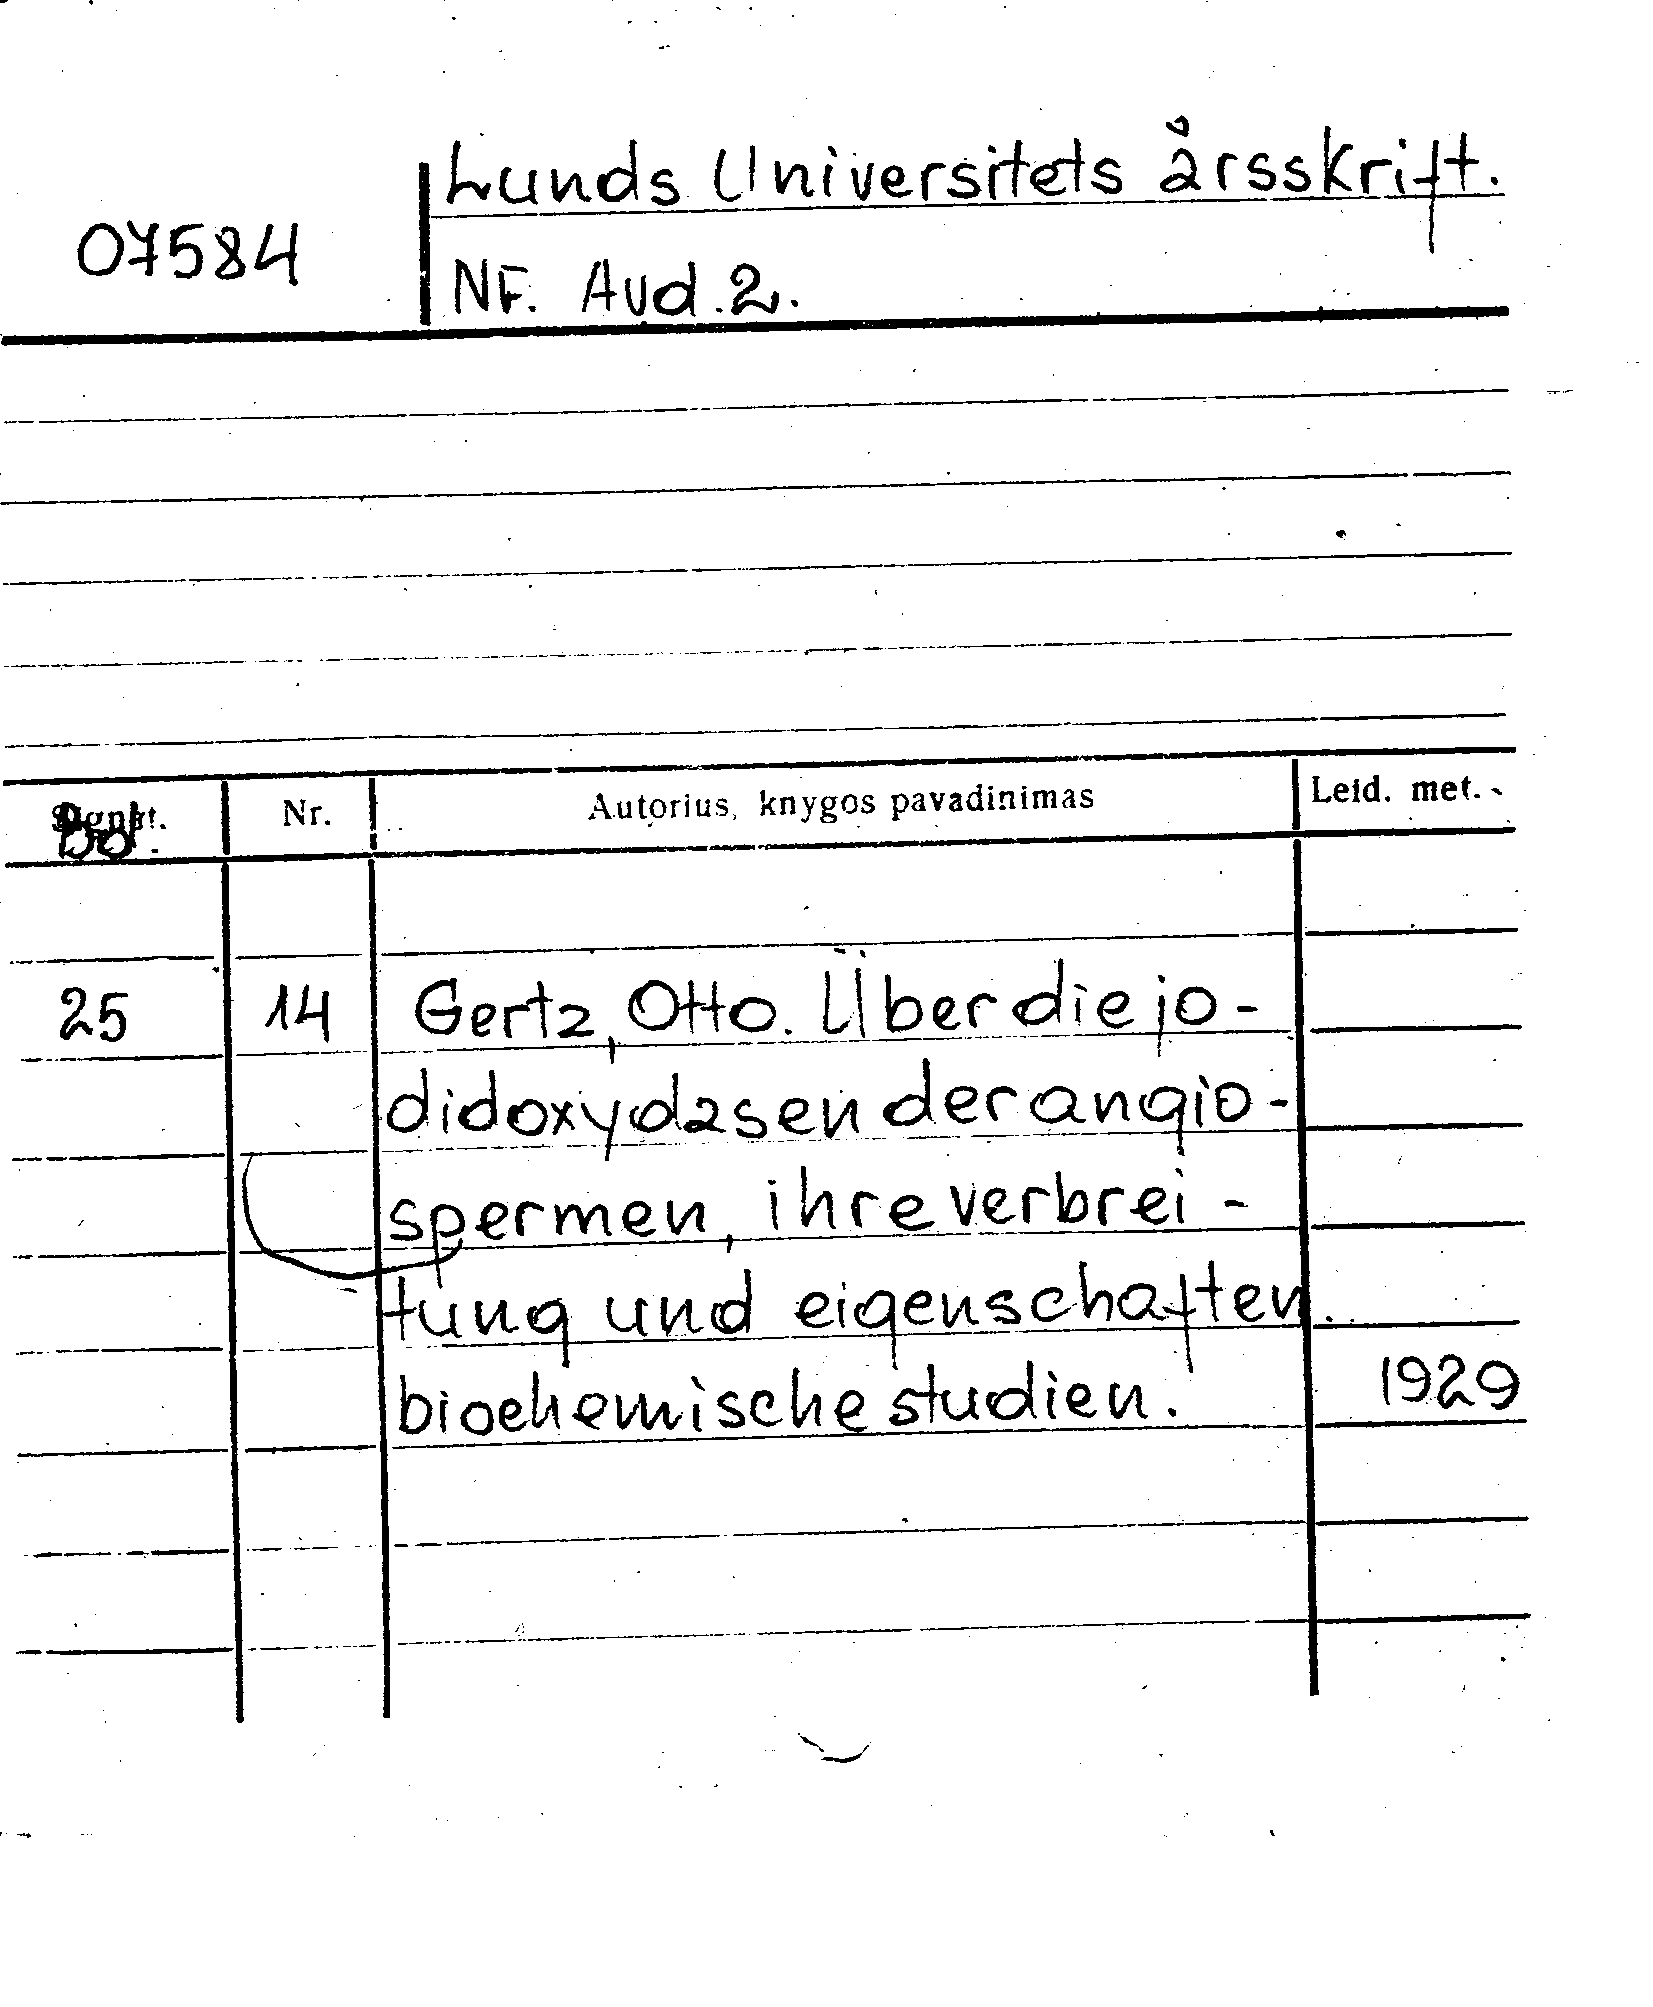 Lunds Universitets årsskrift.
07584
NF. Avd. 2.
Signat. Nr. Autorius, knygos pavadinimas Leid. met.
Bd.
25 14 Gertz, Otto. Über die jo-
didoxydasen der angio-
spermen, ihre verbrei-
tung und eigenschaften.
biochemische studien. 1929